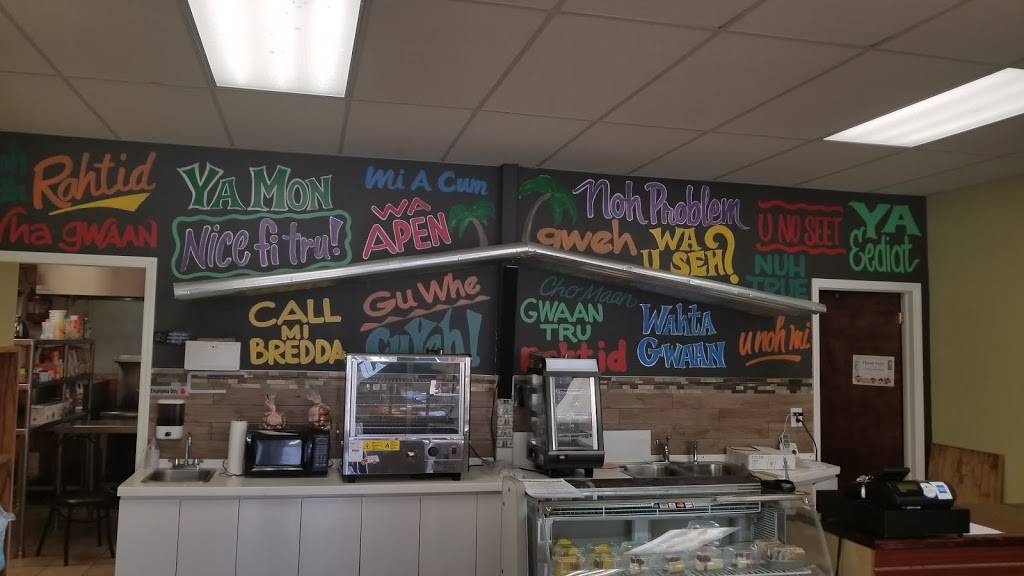 Rahtid
Wha gwaan
Ya Mon
Nice fi tru!
Mi A Cum
WA
APEN
Noh Problem
gweh
WA
U SEH?
U NU SEET
NUH
TRUE
YA
Eediat
CALL
MI
BREDDA
Gu Whe
Cuyah!
Cho Maan
GWAAN
TRU
Wahta
GWAAN
u noh mi